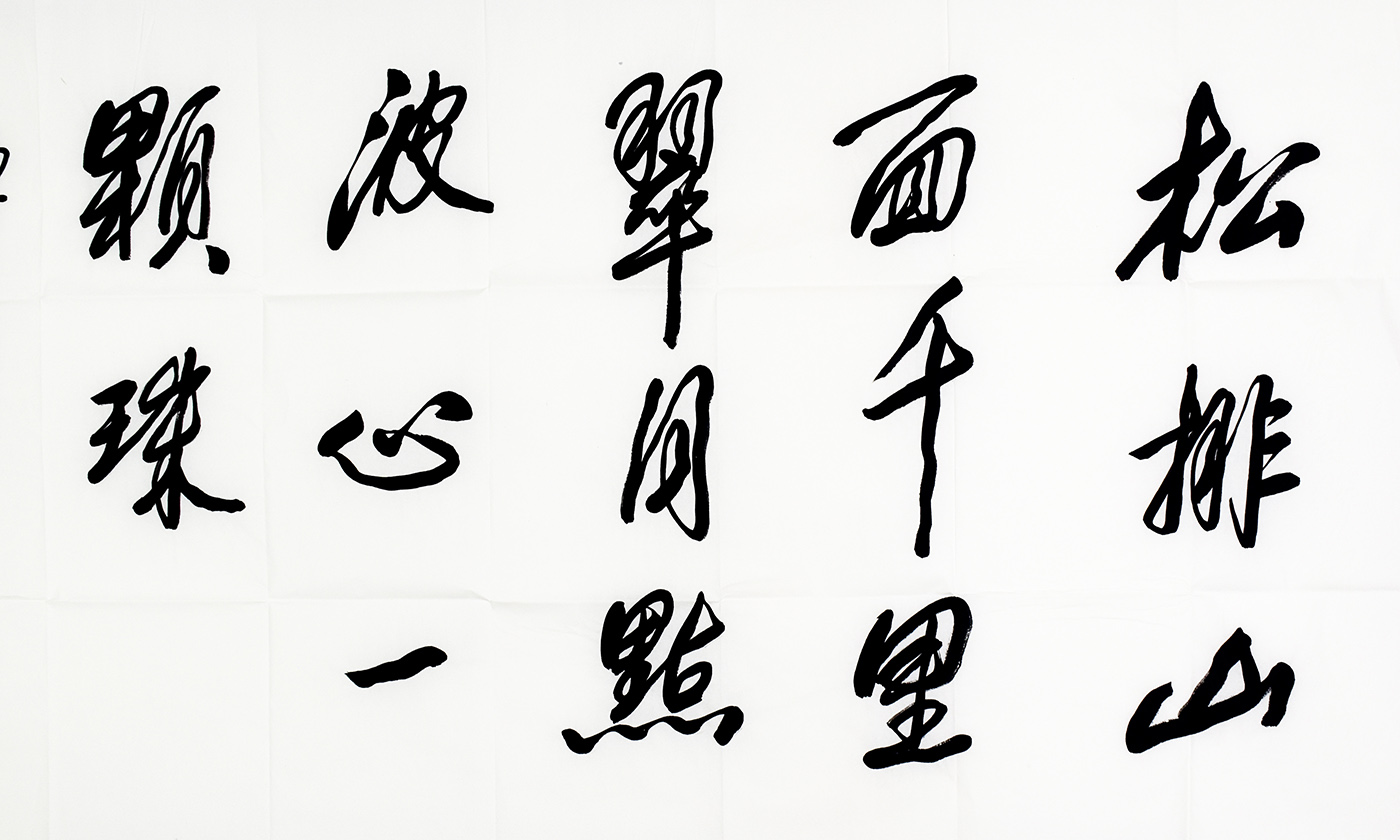 松排山
面千里
翠月點
波心一
顆珠